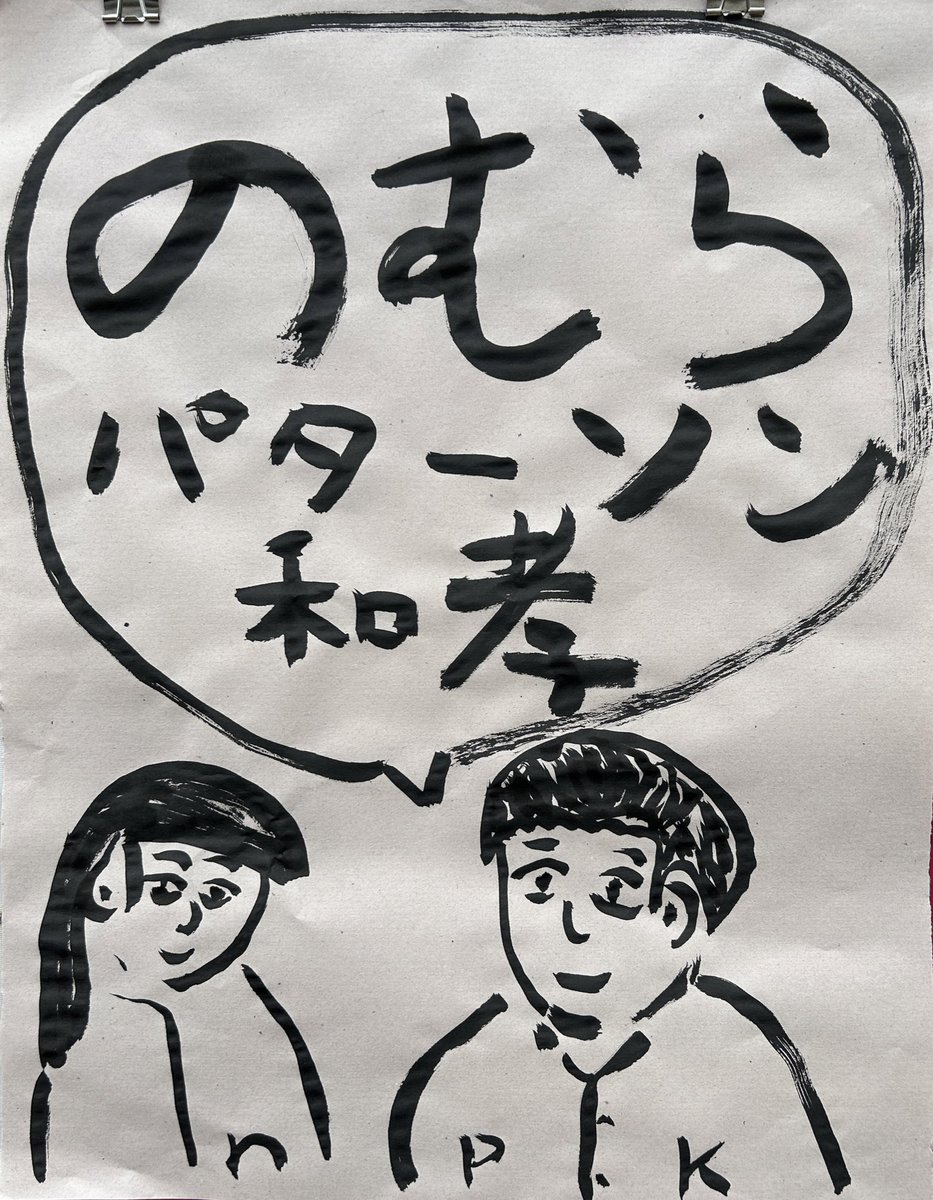 のむら
パターソン
和孝
n P K